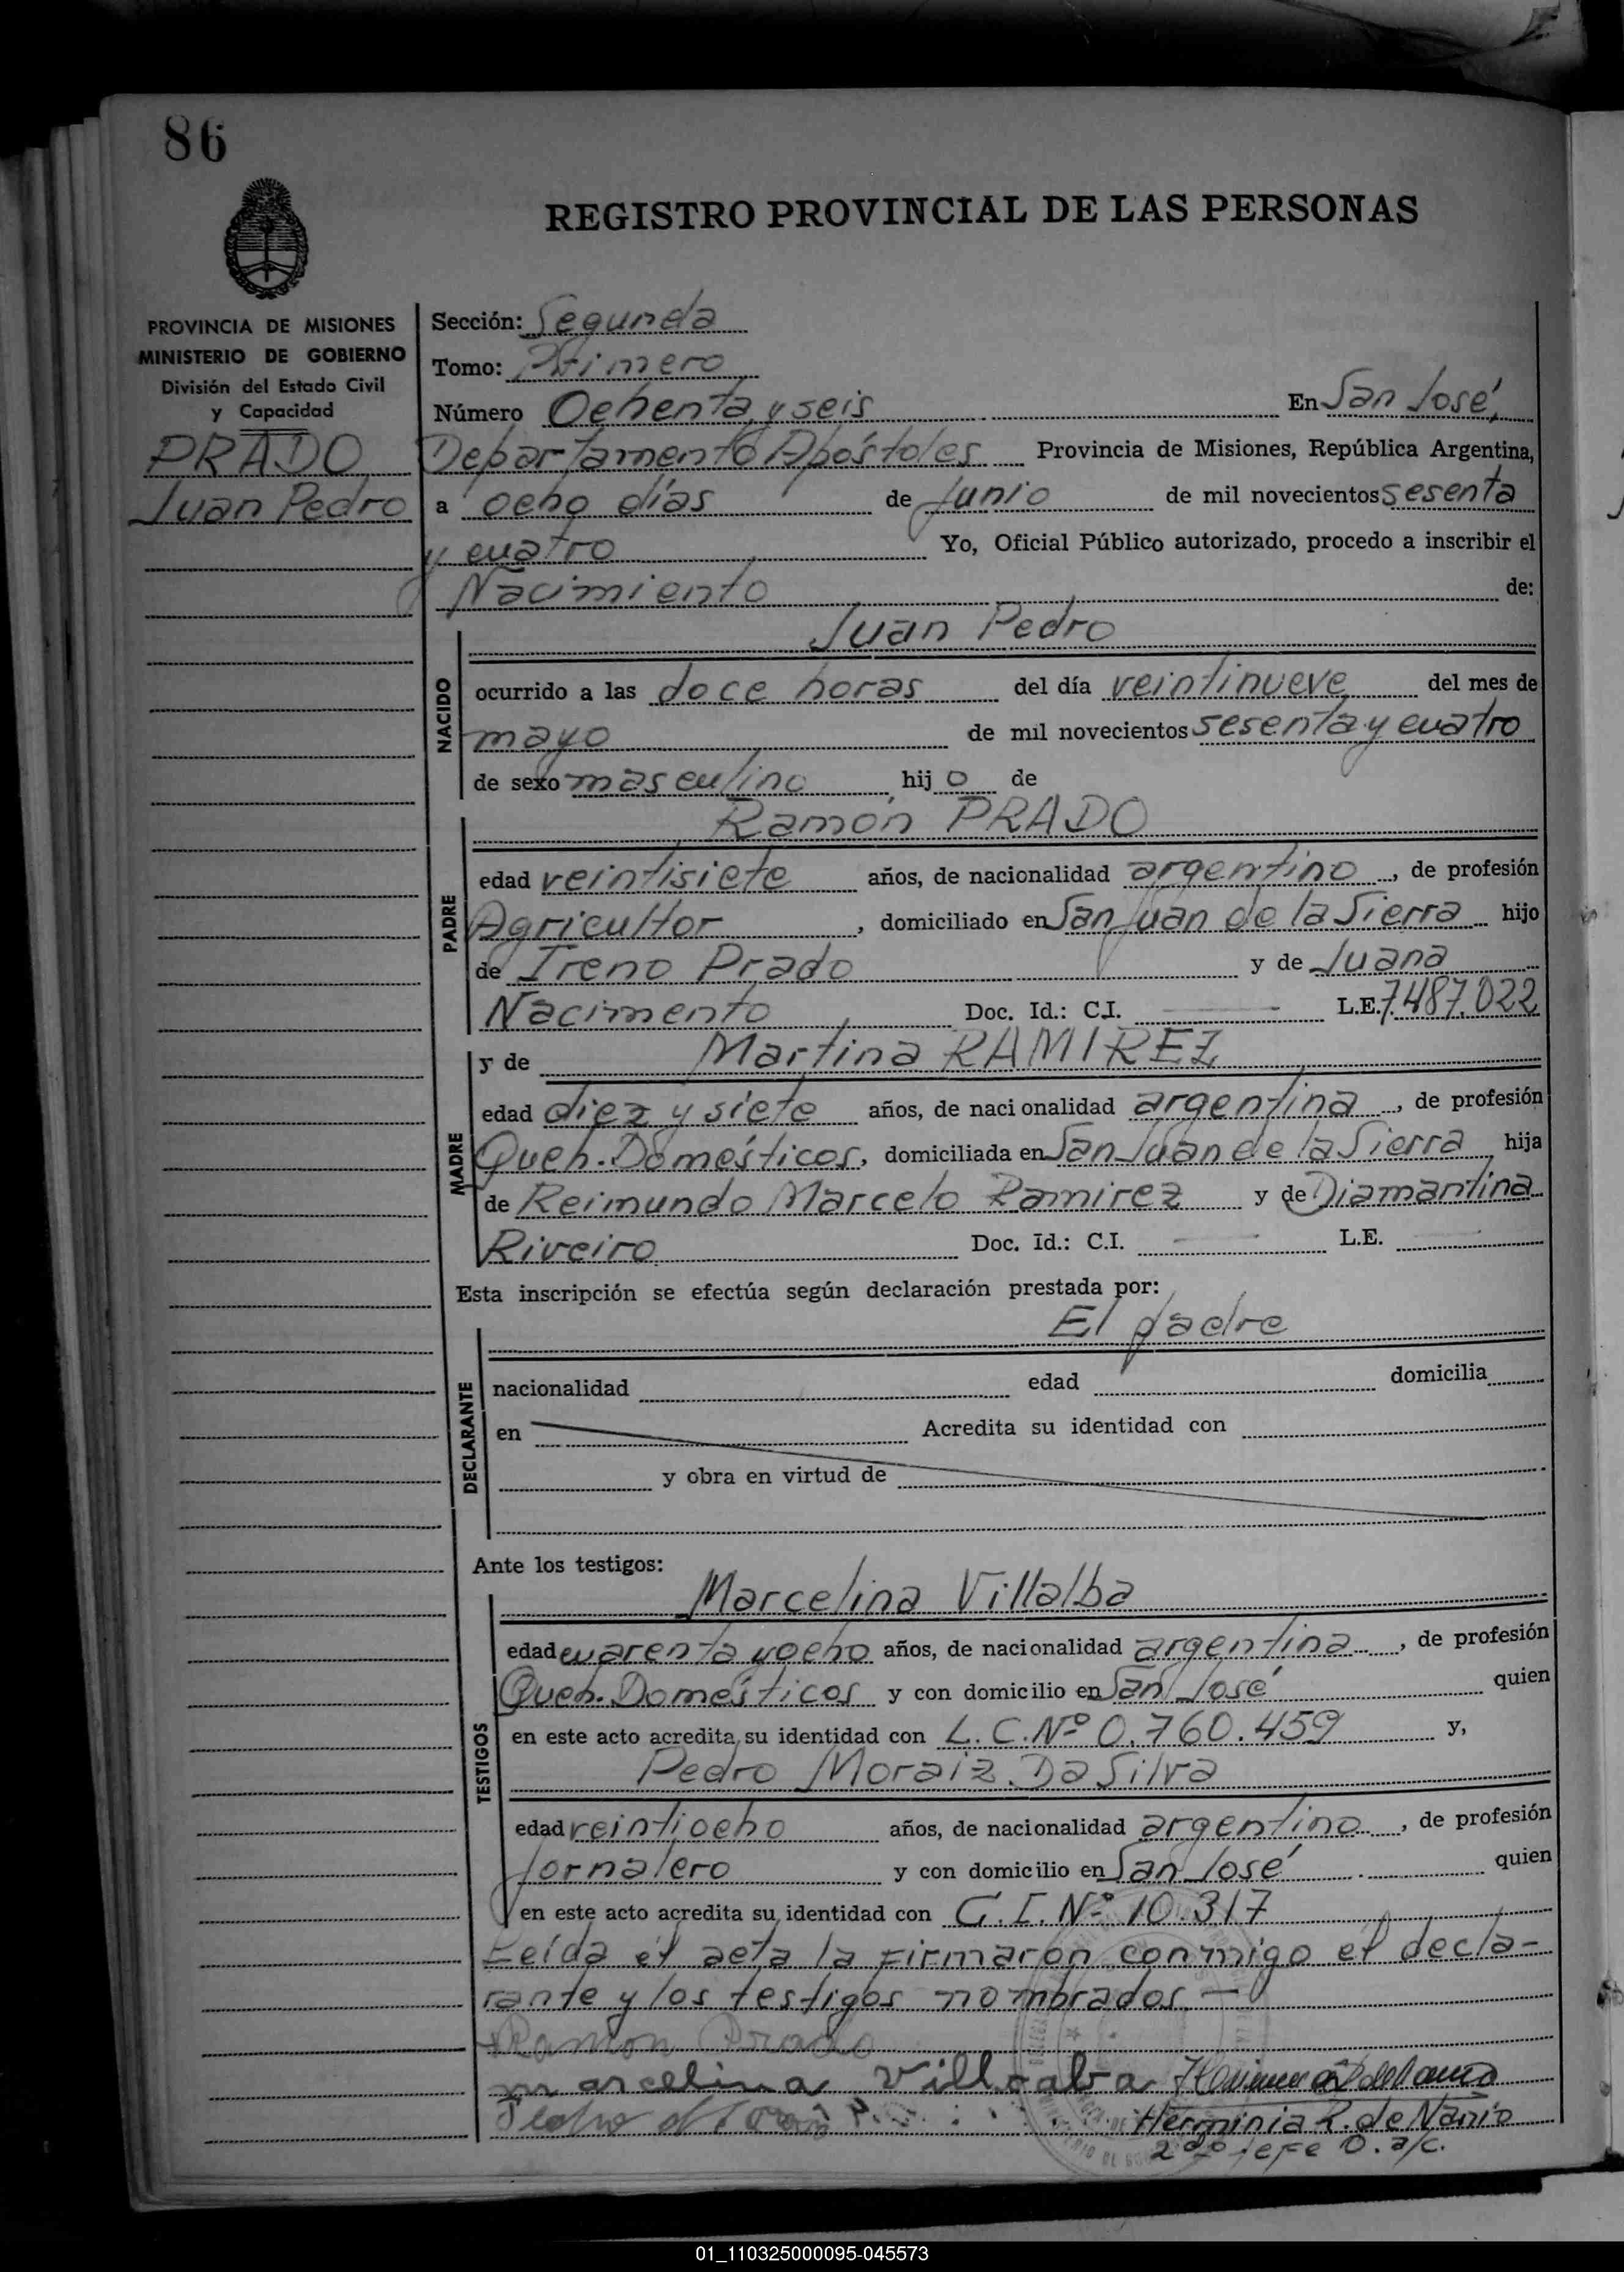 86
REGISTRO PROVINCIAL DE LAS PERSONAS
PROVINCIA DE MISIONES
MINISTERIO DE GOBIERNO
División del Estado Civil
y Capacidad
PRADO
Juan Pedro
Sección: Segunda
Tomo: Primero
Número Ochenta y seis En San José,
Departamento Apóstoles Provincia de Misiones, República Argentina,
a ocho días de Junio de mil novecientos sesenta
y cuatro Yo, Oficial Público autorizado, procedo a inscribir el
Nacimiento de:
Juan Pedro
NACIDO
ocurrido a las doce horas del día veintinueve del mes de
mayo de mil novecientos sesenta y cuatro
de sexo masculino hijo de
Ramón PRADO
PADRE
edad veintisiete años, de nacionalidad argentino, de profesión
Agricultor, domiciliado en San Juan de la Sierra hijo
de Ireno Prado y de Juana
Nacimento Doc. Id.: C.I. — L.E. 7.487.022
y de Martina RAMIREZ
MADRE
edad diez y siete años, de nacionalidad argentina, de profesión
Queh. Domésticos, domiciliada en San Juan de la Sierra hija
de Reimundo Marcelo Ramirez y de Diamantina
Riveiro Doc. Id.: C.I. — L.E. —
Esta inscripción se efectúa según declaración prestada por:
El padre
DECLARANTE
nacionalidad edad domicilia
en Acredita su identidad con
y obra en virtud de
Ante los testigos:
Marcelina Villalba
TESTIGOS
edad cuarenta y ocho años, de nacionalidad argentina, de profesión
Queh. Domésticos y con domicilio en San José quien
en este acto acredita su identidad con L.C. Nº 0.760.459 y,
Pedro Moraiz Da Silva
edad veintiocho años, de nacionalidad argentino, de profesión
Jornalero y con domicilio en San José quien
en este acto acredita su identidad con C.I. Nº 10.317
Leída el acta la firmaron conmigo el decla-
rante y los testigos nombrados.—
Ramon Prado
marcelina Villalba
Pedro
Herminia R. de Nazio
2do jefe O. a/c.
01_110325000095-045573